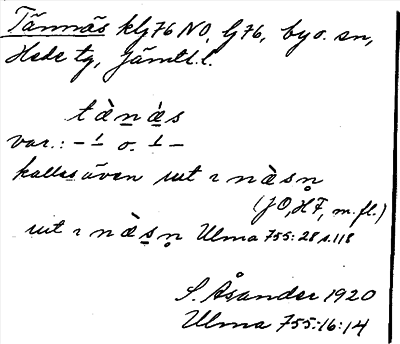 Tännäs klg 76 NO, G 76, by o. sn,
Hede tg, Jämtl. l.
tὰnás
var.: – ⊥ o. ⊥ –
kallas även ut ı nὰsn̥
(JO, HF, m. fl.)
ut ı nὰsn̥ Ulma 755:28 s. 118
S. Åsander 1920
Ulma 755:16:14